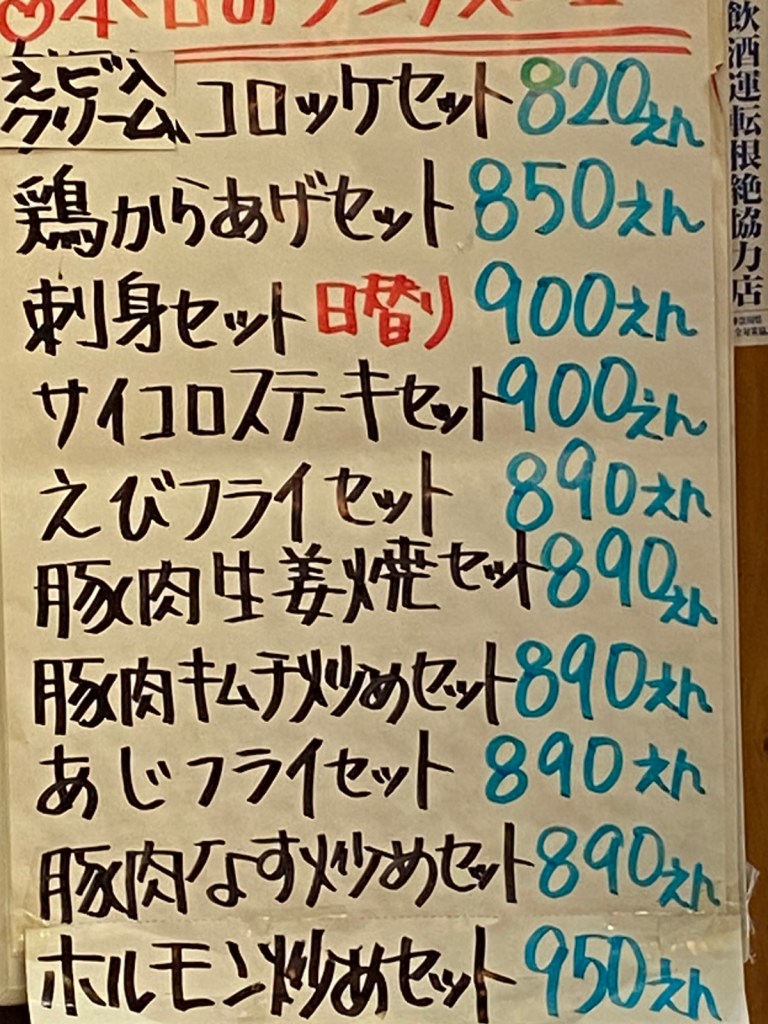 本日の
えビ入
クリーム コロッケセット 820えん
鶏からあげセット 850えん
刺身セット 日替り 900えん
サイコロステーキセット 900えん
えびフライセット 890えん
豚肉生姜焼セット 890えん
豚肉キムチ炒めセット 890えん
あじフライセット 890えん
豚肉なす炒めセット 890えん
ホルモン炒めセット 950えん
飲酒運転根絶協力店